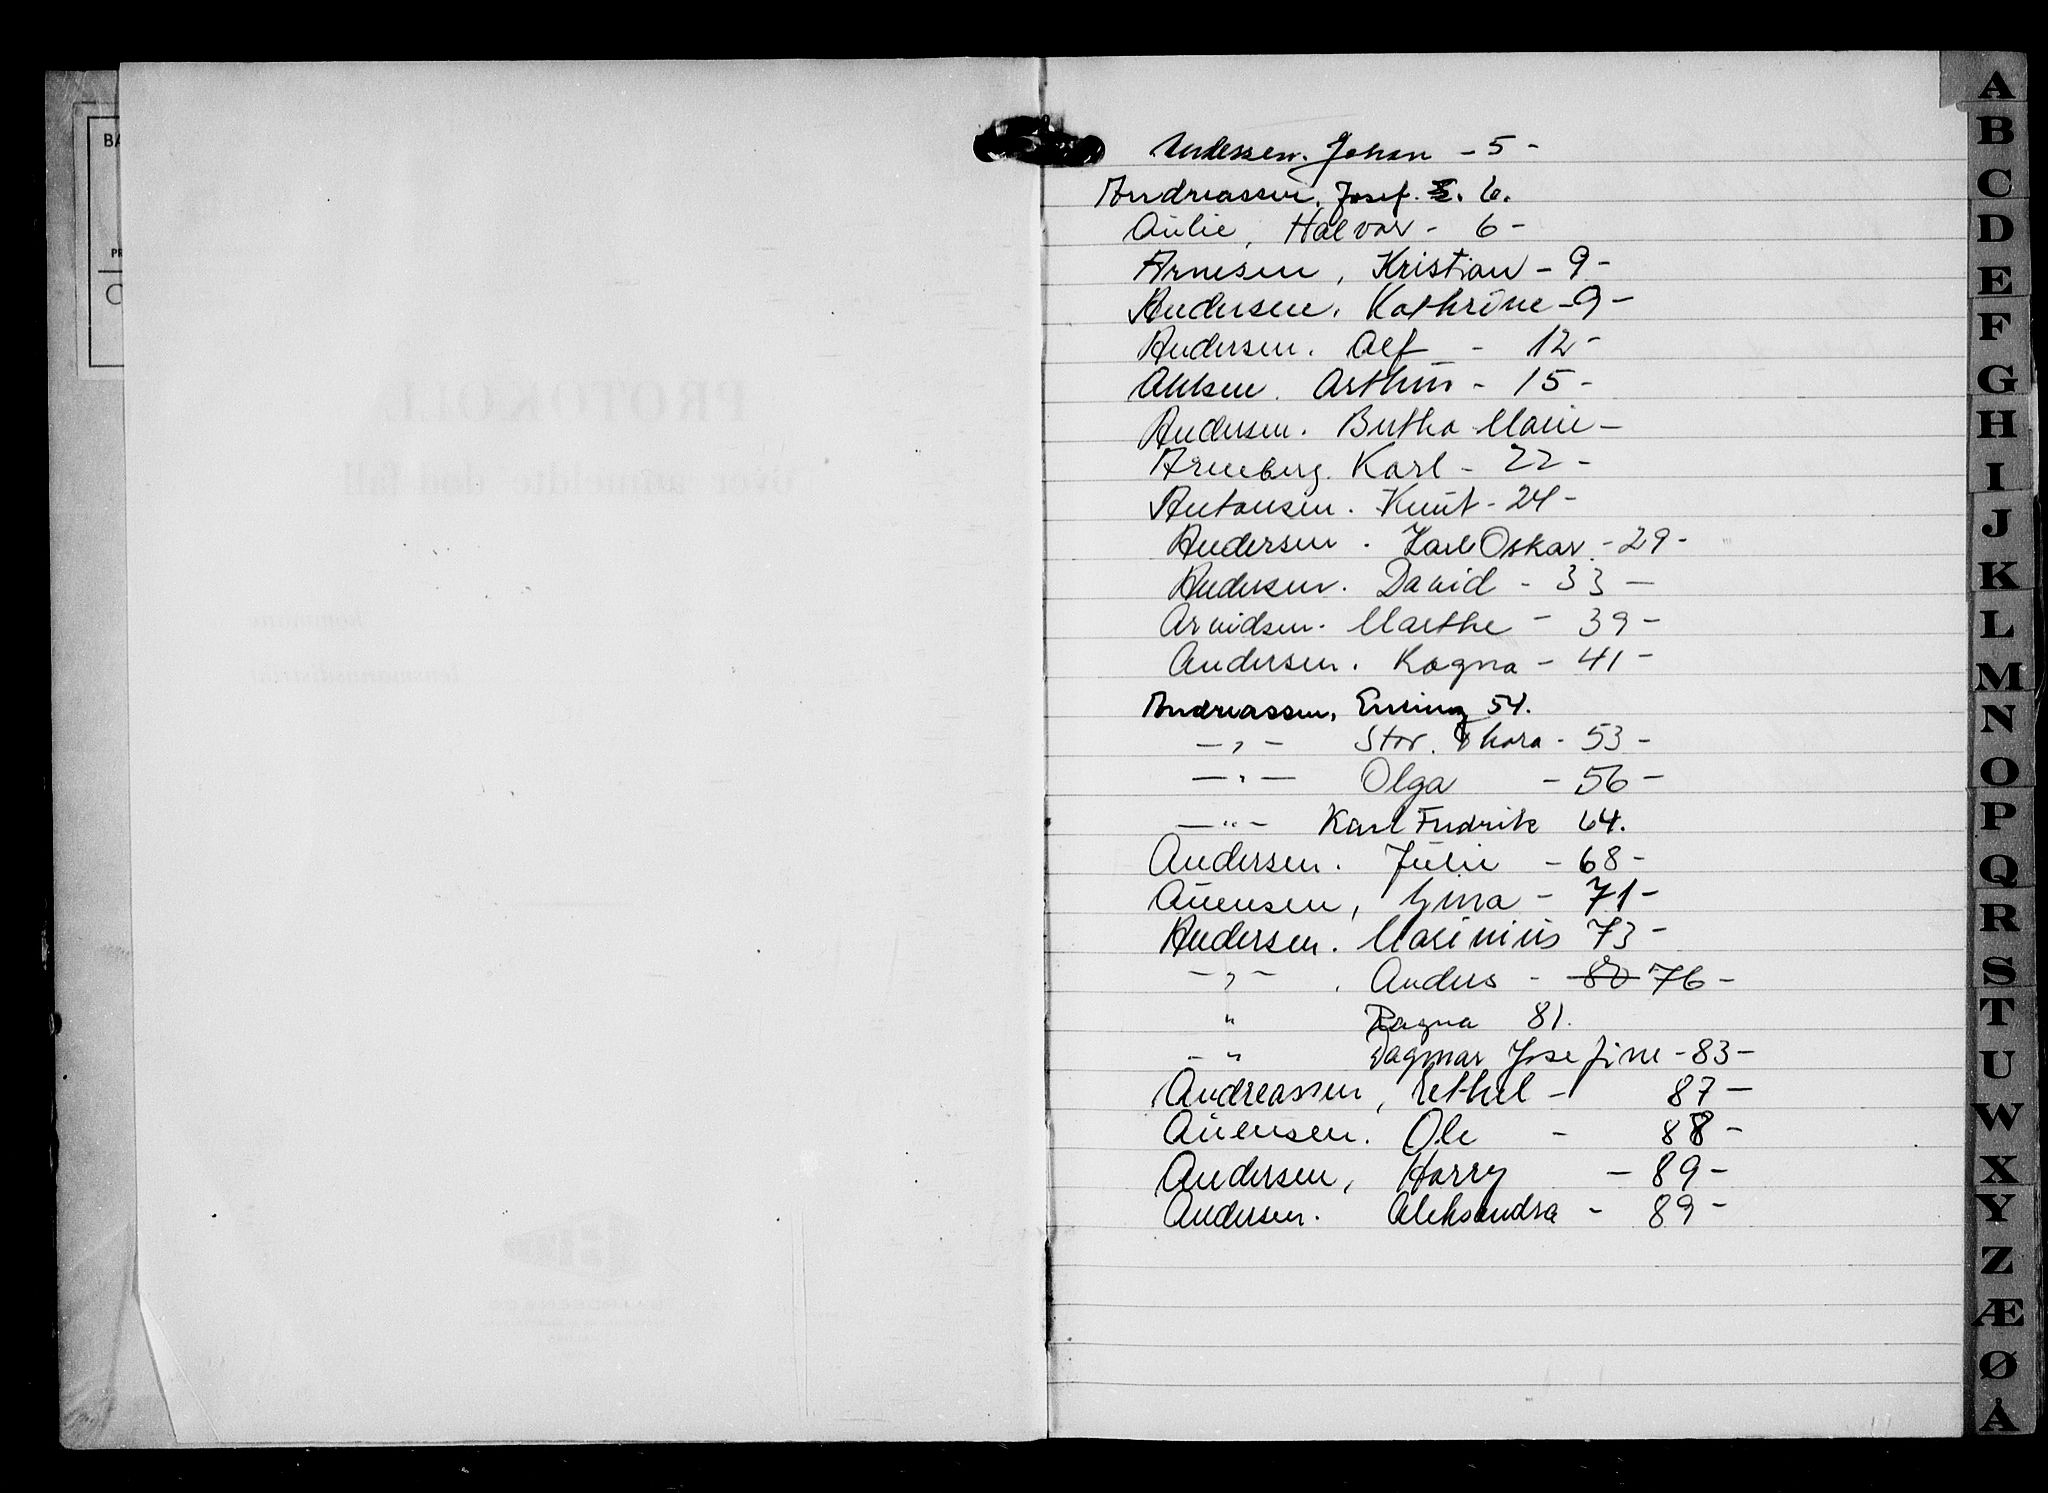 Andersen. Johan - 5 -
Andreassen, Josef. 6.
Aulie, Halvor - 6 -
Arnesen, Kristian - 9 -
Andersen, Kathrine - 9 -
Andersen. Alf - 12 -
Arthur - 15 -
Andersen. Bertha Marie -
Arneberg. Karl - 22 -
Antonsen. Knut - 24 -
Andersen. Karl Oskar - 29 -
Andersen. David - 33 -
Arvidsen. Marthe - 39 -
Andersen. Ragna - 41 -
Andreassen, Erling 54.
- , - Stor. Thora - 53 -
- " - Olga - 56 -
- " - Karl Fredrik 64.
Andersen. Julie - 68 -
Auensen, Gina - 71 -
Andersen. Marinius 73 -
- , - . Anders - 80 76 -
" Ragna 81.
- " Dagmar Josefine - 83 -
Andreassen, Ethel - 87 -
Auensen. Ole - 88 -
Andersen, Harry - 89 -
Andersen. Aleksandra - 89 -
A
B
C
D
E
F
G
H
I
J
K
L
M
N
O
P
Q
R
S
T
U
W
X
Y
Z
Æ
Ø
Å